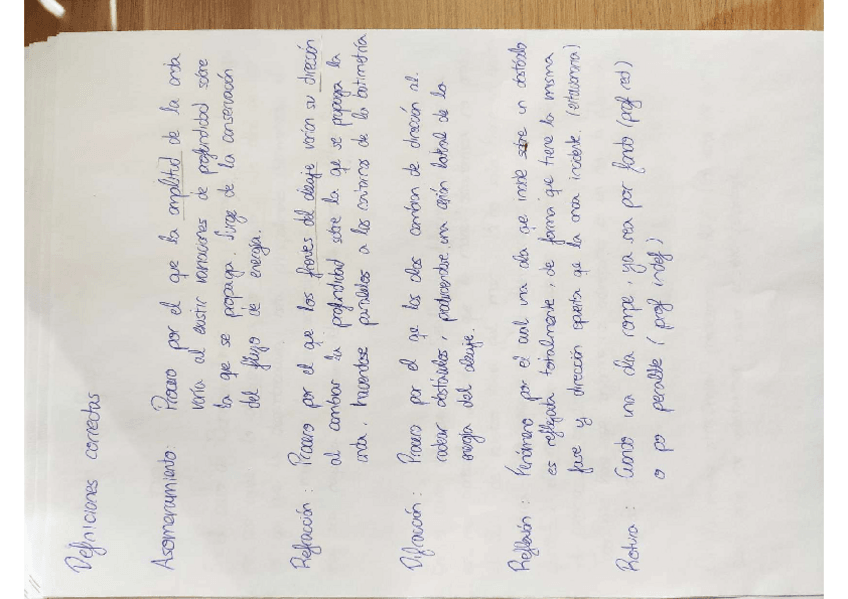 Definiciones correctas
Asomeramiento: Proceso por el que la amplitud de la onda
varía al existir variaciones de profundidad sobre
la que se propaga. Surge de la conservación
del flujo de energía.
Refracción: Proceso por el que los frentes del oleaje varían su dirección
al cambiar la profundidad sobre la que se propaga la
onda, haciendose paralelos a los contornos de la batimetría
Difracción: Proceso por el qe las olas cambian de dirección al
rodear obstáculos, produciendose una cesión lateral de la
energía del oleaje.
Reflexión: Fenómeno por el cual una ola qe incide sobre un obstáculo
es reflejada totalmente, de forma que tiene la misma
fase y dirección opuesta qe la onda incidente. (estacionaria)
Rotura: Cuando una ola rompe, ya sea por fondo (prof red)
o po peralte (prof indef)